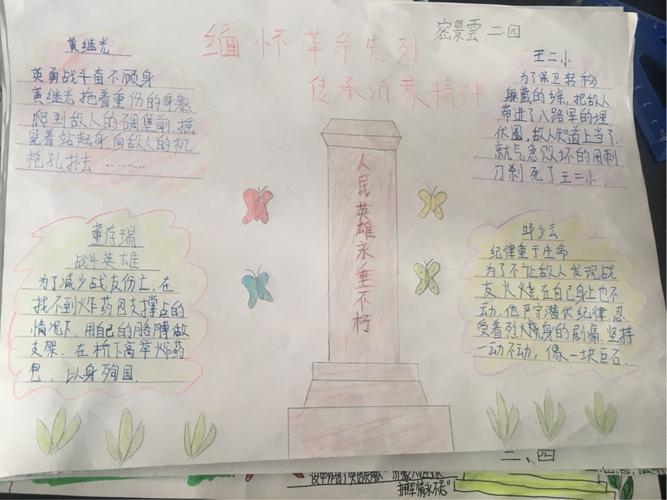 缅怀革命先烈
传承沂蒙精神
密景雲 二.四
黄继光
英勇战斗奋不顾身
黄继光拖着重伤的身躯
爬到敌人的碉堡前,摇
晃着站起身向敌人的机
枪孔扑去……
王二小
为了保卫转移
躲藏的乡亲,把敌人
带进了八路军的埋
伏圈,敌人知道上当了
就气急败坏的用刺
刀刹死了王二小.
人民英雄永垂不朽
董存瑞
战斗英雄
为了减少战友伤亡,在
找不到炸药包支撑点的
情况下,用自己的胳膊做
支架,在桥下高举炸药
包,以身殉国.
邱少云
纪律重于生命
为了不让敌人发现战
友,火烧在自己身上也不
动,他严守潜伏纪律,忍
受着烈火烧身的剧痛,坚持
一动不动,像一块巨石.
二、四
拥军情永不忘"